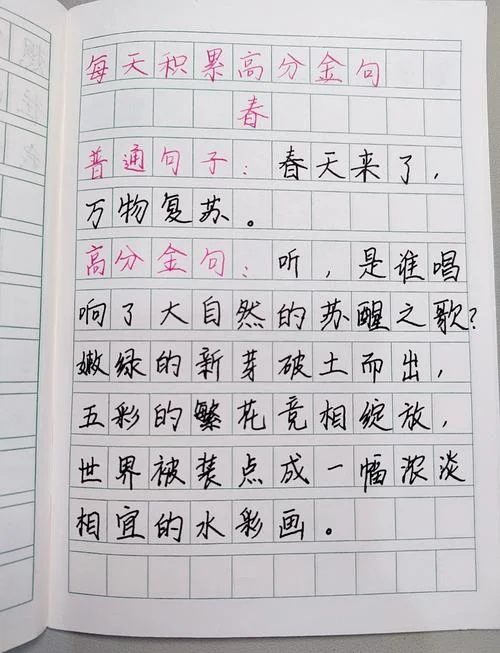 每天积累高分金句
春
普通句子：春天来了，
万物复苏。
高分金句：听，是谁唱
响了大自然的苏醒之歌？
嫩绿的新芽破土而出，
五彩的繁花竞相绽放，
世界被装点成一幅浓淡
相宜的水彩画。